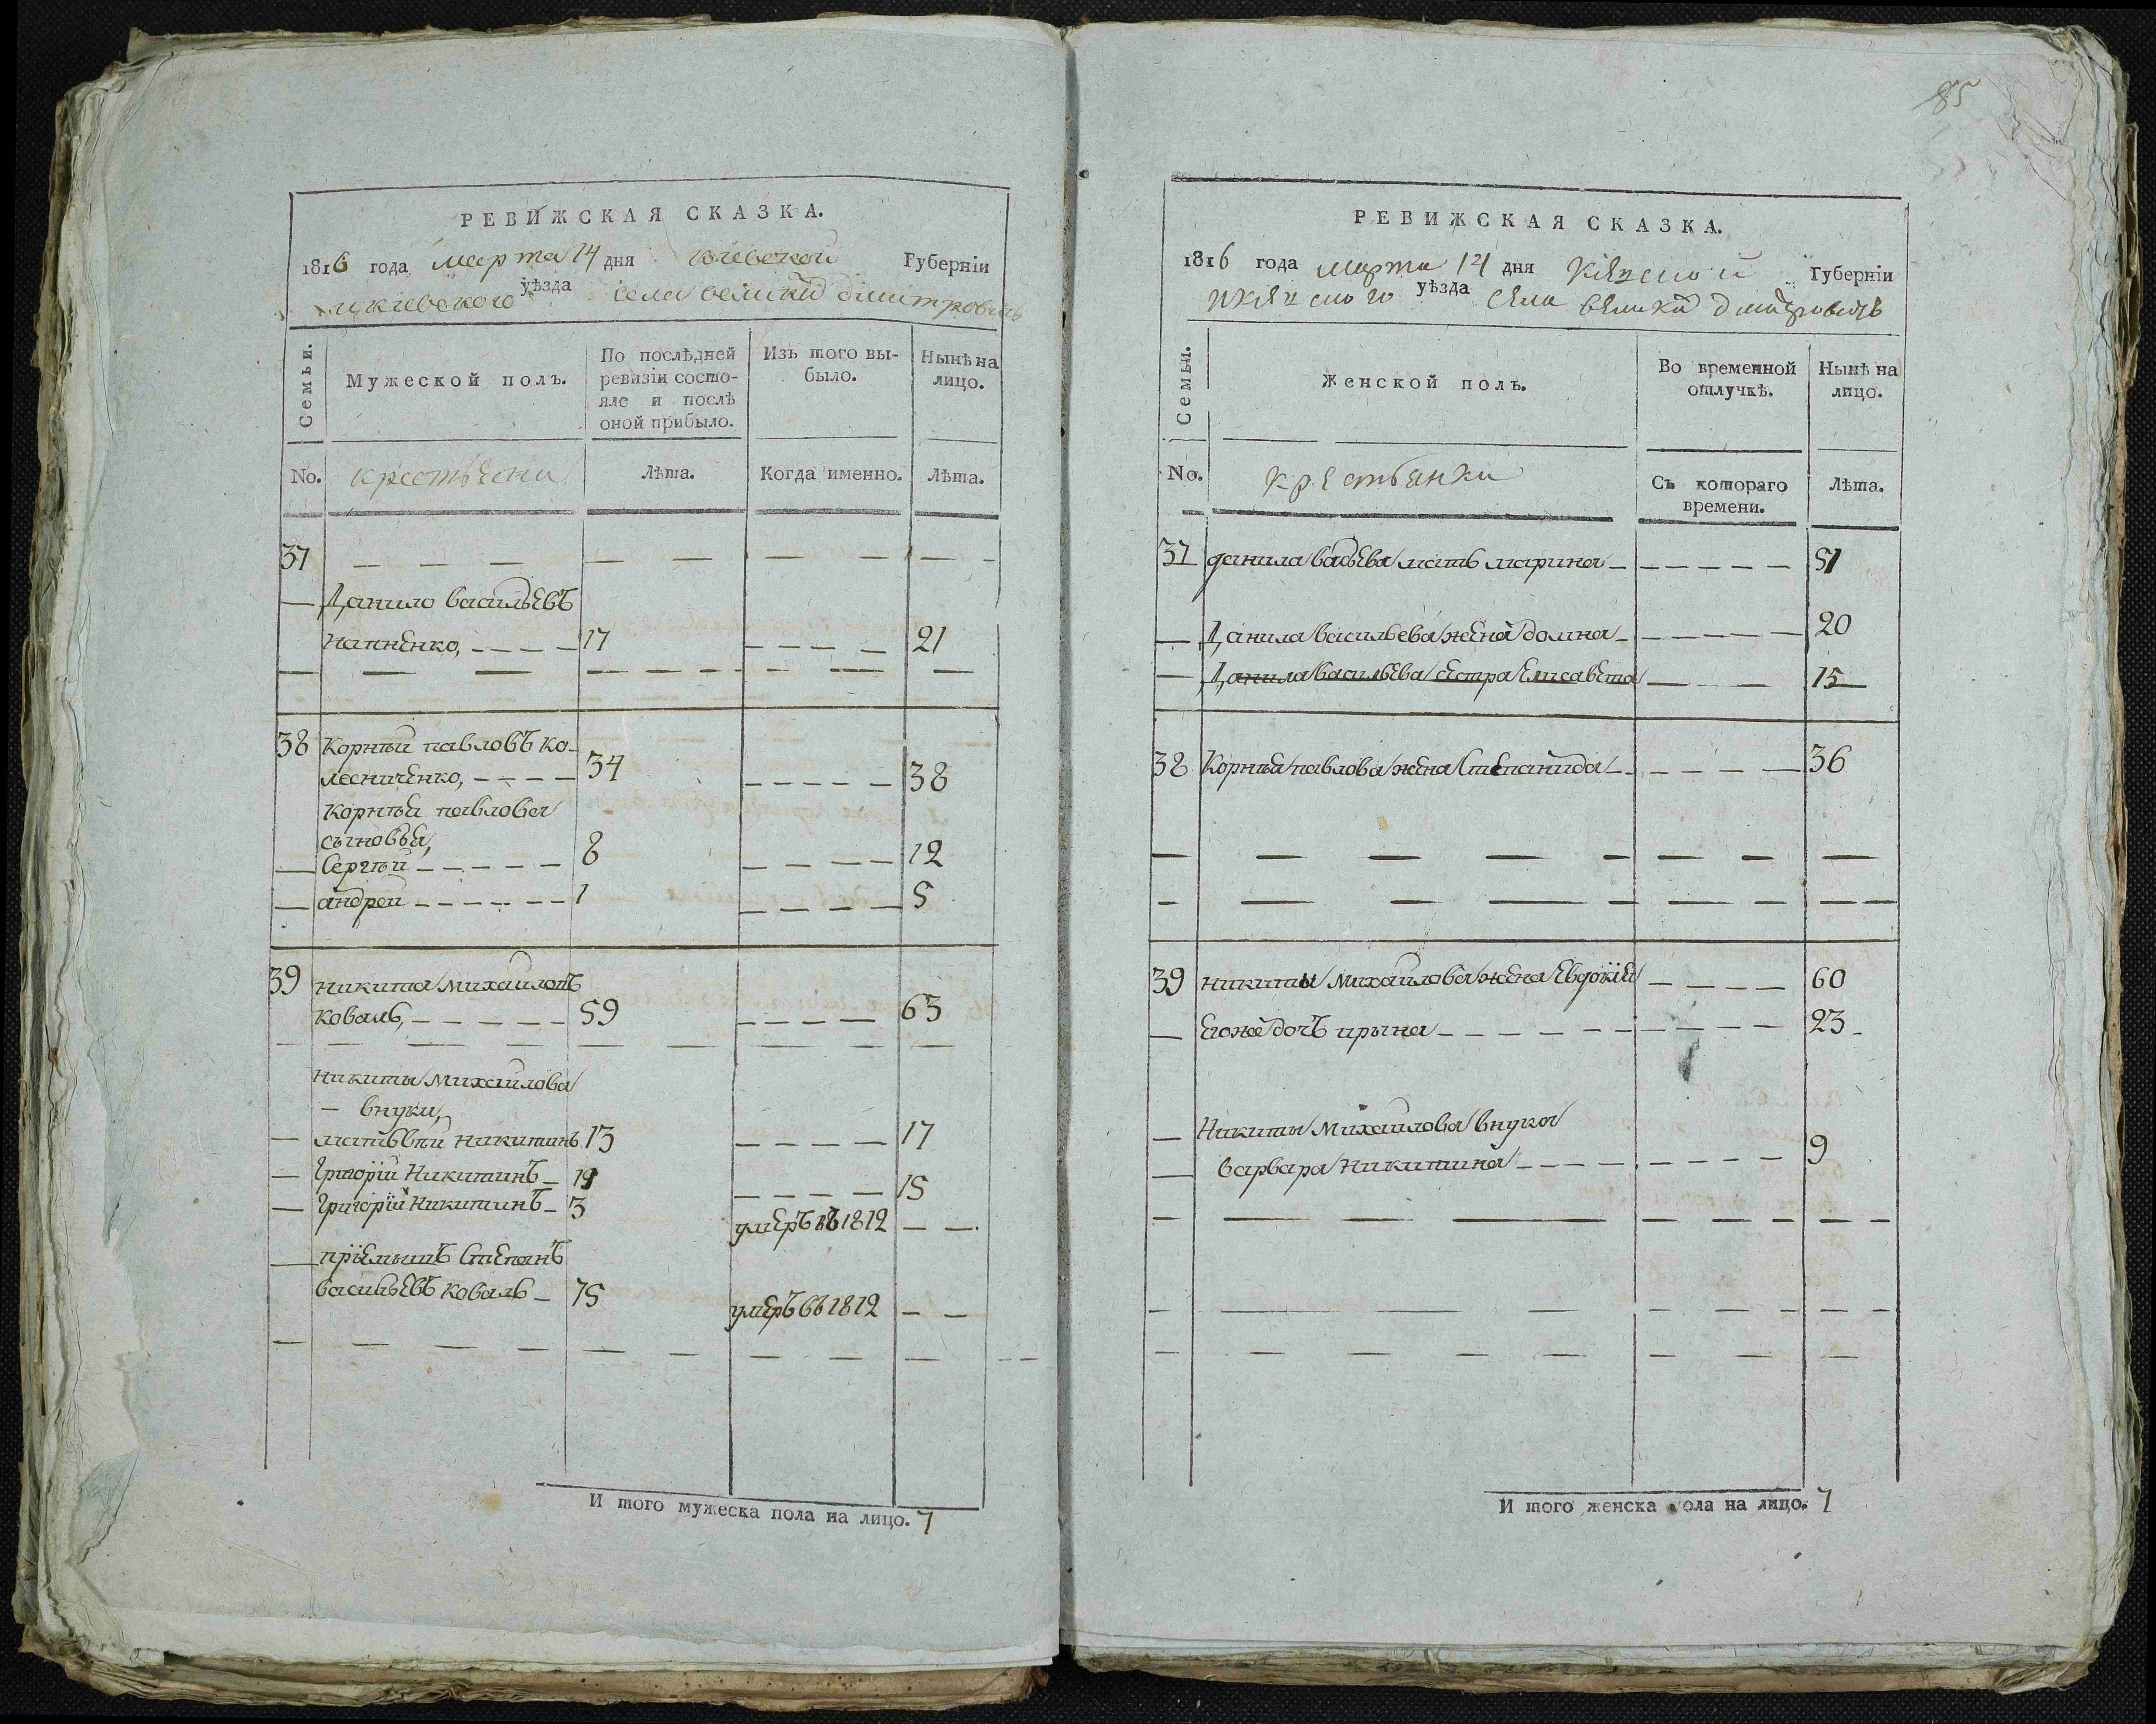 РЕВИЖСКАЯ СКАЗКА.
1816 года марта 14 дня Киевской Губерніи
икіевского уѣзда села великих дмитровичь
Семьи.
Мужеской полъ.
По послѣдней ревизіи состояло и послѣ оной прибыло.
Изъ того выбыло.
Нынѣ на лицо.
No. крестьяни Лѣта. Когда именно. Лѣта.
37 — — — — — — — —
— Данило васильевъ
напненко, — — — — 17 — — — — 21
38 Корнѣй павловъ ко-
лесниченко, — — — — 34 — — — — 38
Корнѣя павлова
сыновья,
— Сергѣй — — — — — 8 — — — — 12
— андрей — — — — — — 1 — — — — 5
39 никита михайловъ
коваль, — — — — — 59 — — — — 63
никиты михайлова
— внуки,
— матьвѣй никитинъ 13 — — — — 17
— григорій никитинъ — 11 — — — — 15
— григорій никитинъ — 3 умеръ въ 1812 — —
— пріемышъ степанъ
васильевъ коваль — 75 умеръ въ 1812 — —
И того мужеска пола на лицо. 7
85
РЕВИЖСКАЯ СКАЗКА.
1816 года марта 14 дня Кіевской Губерніи
икіевского уѣзда села великих дмитровичь
Семьи.
Женской полъ.
Во временной отлучкѣ.
Нынѣ на лицо.
No. крестьянки Съ котораго времени. Лѣта.
37 данила васьева мать марина — — — — — — 51
— Данила васильева жена домна — — — — — — 20
— Данила васильева сестра елисавета — — 15
38 Корнѣя павлова жена степанида — — — — — 36
39 никиты михайлова жена евдокія — — — — 60
— егоже дочъ ирына — — — — — — — — — 23 —
— Никиты михайлова внука
— варвара никитина — — — — — — — — 9
И того женска пола на лицо. 7